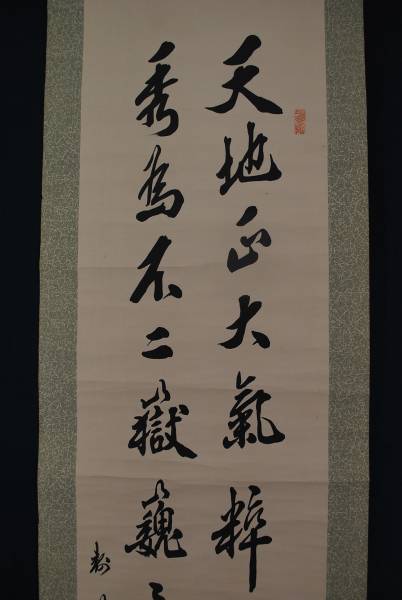 天地正大氣粹
秀為不二嶽巍